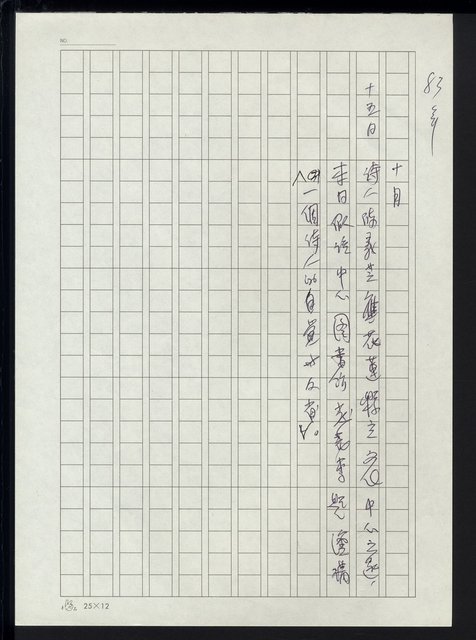 NO.
83年
十月
十五日 詩人陳義芝應花蓮縣立文化中心之邀，
本日假該中心圖書館 演講
一個詩人的自覺與反省。
25×12